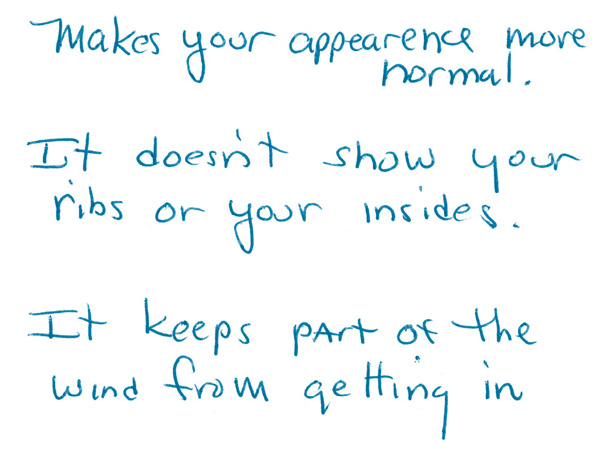 Makes your appearence more
normal.
It doesn't show your
ribs or your insides.
It keeps part of the
wind from getting in